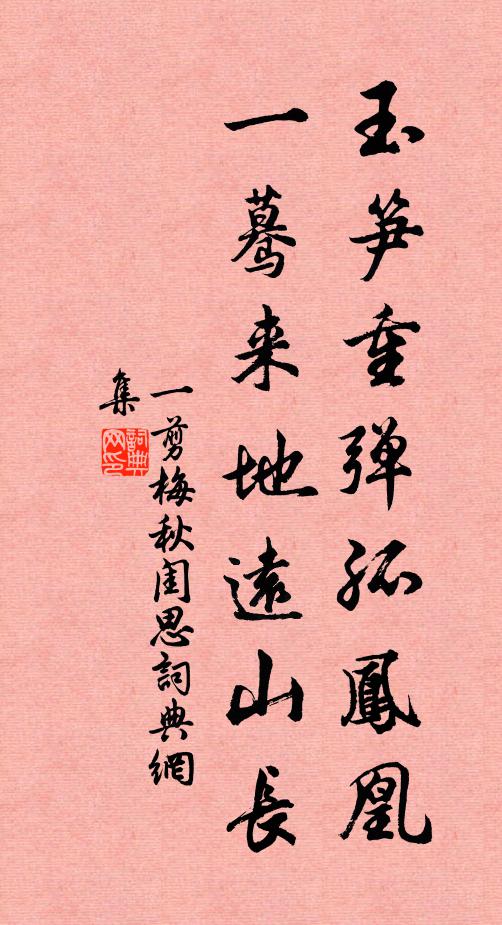 玉笋重弹孤鳳凰
一驀来地遠山長
一剪梅秋闺思詞典網
集
詞典
网印